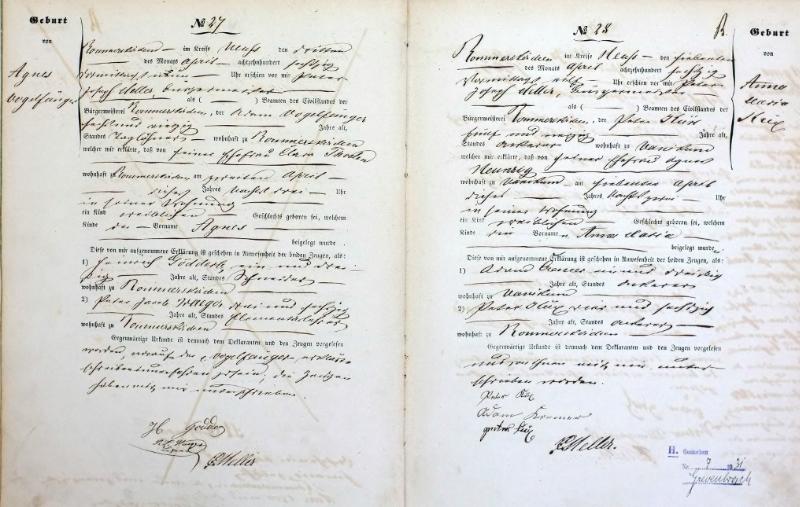 Geburt
von
Agnes
Vogelsanger
No 27
Rommerskirchen im Kreise Neuss den dritten
des Monats April achtzehnhundert sechzig
Vormittags neun Uhr erschien vor mir Peter
Joseph Heller Bürgermeister
als ( ) Beamten des Civilstandes der
Bürgermeisterei Rommerskirchen, der Adam Vogelsanger
Jahre alt,
Standes Taglöhner wohnhaft zu Rommerskirchen
welcher mir erklärte, daß von seiner Ehefrau Clara
wohnhaft Rommerskirchen am zweiten April
dieses Jahres Nachts drei Uhr
in seiner Wohnung
ein Kind weiblichen Geschlechts geboren sei, welchem
Kinde der Vorname Agnes
beigelegt wurde
Diese von mir aufgenommene Erklärung ist geschehen in Anwesenheit der beiden Zeugen, als:
1) ein und drei-
ßig Jahre alt, Standes Schneider
wohnhaft zu Rommerskirchen
2) Peter Jacob und sechzig
Jahre alt, Standes Elementarlehrer
wohnhaft zu Rommerskirchen
Gegenwärtige Urkunde ist demnach dem Deklaranten und den Zeugen vorgelesen
worden, worauf der Vogelsanger erklärte
Schreibens unerfahren zu sein, die Zeugen
haben mit mir unterschrieben.
PJHeller
No 28
B.
Geburt
von
Anna
Maria
Rommerskirchen im Kreise Neuss den siebenten
des Monats April achtzehnhundert sechzig
Vormittags elf Uhr erschien vor mir Peter
Joseph Heller, Bürgermeister
als ( ) Beamten des Civilstandes der
Bürgermeisterei Rommerskirchen, der Peter
fünf und Jahre alt,
Standes Ackerer wohnhaft zu Vanikum
welcher mir erklärte, daß von seiner Ehefrau Agnes
wohnhaft zu Vanikum am siebenten April
dieses Jahres Nachts zwei Uhr
in seiner Wohnung
ein Kind weiblichen Geschlechts geboren sei, welchem
Kinde die Vornamen Anna Maria
beigelegt wurde
Diese von mir aufgenommene Erklärung ist geschehen in Anwesenheit der beiden Zeugen, als:
1) Adam ein und dreißig
Jahre alt, Standes Ackerer
wohnhaft zu Vanikum
2) Peter und sechzig
Jahre alt, Standes Ackerer
wohnhaft zu Rommerskirchen
Gegenwärtige Urkunde ist demnach dem Deklaranten und den Zeugen vorgelesen
und von ihnen mit mir unter-
schrieben worden.
Peter
Adam Kremer
PJHeller.
H.
Nr. 7
Grevenbroich